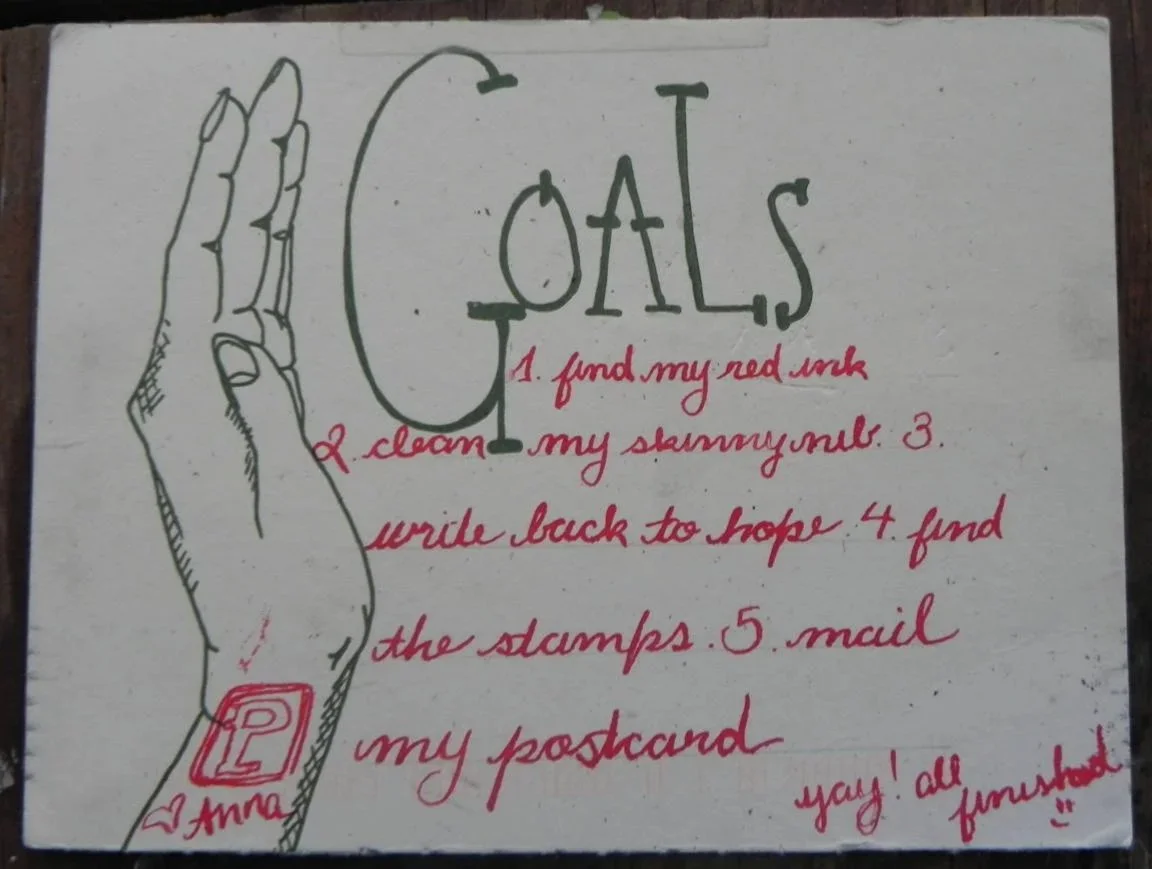 GOALS
1. find my red ink
2. clean my skinny nib. 3.
write back to hope. 4. find
the stamps. 5. mail
my postcard
yay! all
finished
P
Anna